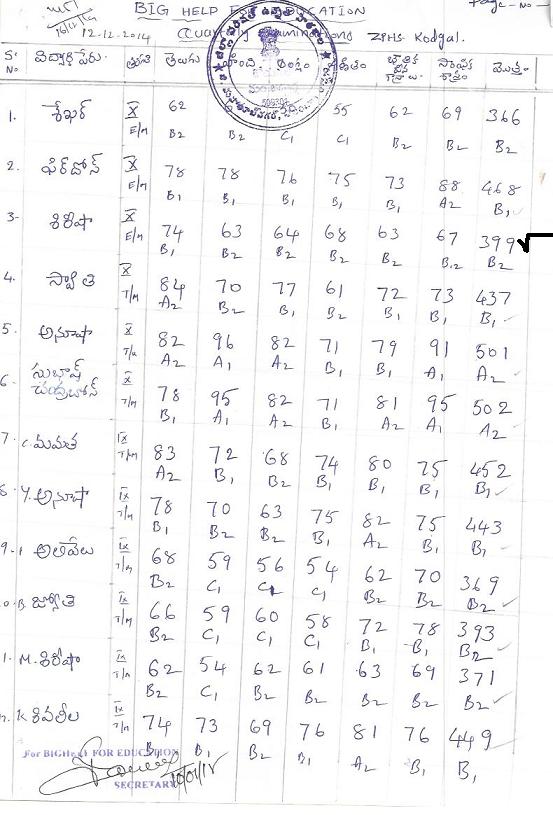 Page - No -
BIG HELP FOR EDUCATION
12-12-2014 Quarterly examinations ZPHS Kodgal.
S. No విద్యార్థి పేరు. తెలుగు హింది మొత్తం
1. శేఖర్ X E/m 62 B2 B2 C1 55 C1 62 B2 69 B2 366 B2
2. ఫిర్దోస్ X E/m 78 B1 78 B1 76 B1 75 B1 73 B1 88 A2 468 B1
3- శిరీషా X E/m 74 B1 63 B2 64 B2 68 B2 63 B2 67 B2 399 B2
4. స్వాతి X T/m 84 A2 70 B2 77 B1 61 B2 72 B1 73 B1 437 B1
5. అనూషా X T/m 82 A2 96 A1 82 A2 71 B1 79 B1 91 A1 501 A2
6 సుభాష్ చంద్రబోస్ X T/m 78 B1 95 A1 82 A2 71 B1 81 A2 95 A1 502 A2
7. C. మమత IX T/m 83 A2 72 B1 68 B2 74 B1 80 B1 75 B1 452 B1
8. Y. అనూషా IX T/m 78 B1 70 B2 63 B2 75 B1 82 A2 75 B1 443 B1
9. అలివేలు IX T/m 68 B2 59 C1 56 54 C1 62 B2 70 B2 369 B2
0. B. జ్యోతి IX T/m 66 B2 59 C1 60 C1 58 C1 72 B1 78 B1 393 B2
1. M. శిరీషా IX T/m 62 B2 54 C1 62 B2 61 B2 63 B2 69 B2 371 B2
K శివలీల IX T/m 74 B1 73 B1 69 B2 76 B1 81 A2 76 B1 449 B1
For BIGHELP FOR EDUCATION
SECRETARY